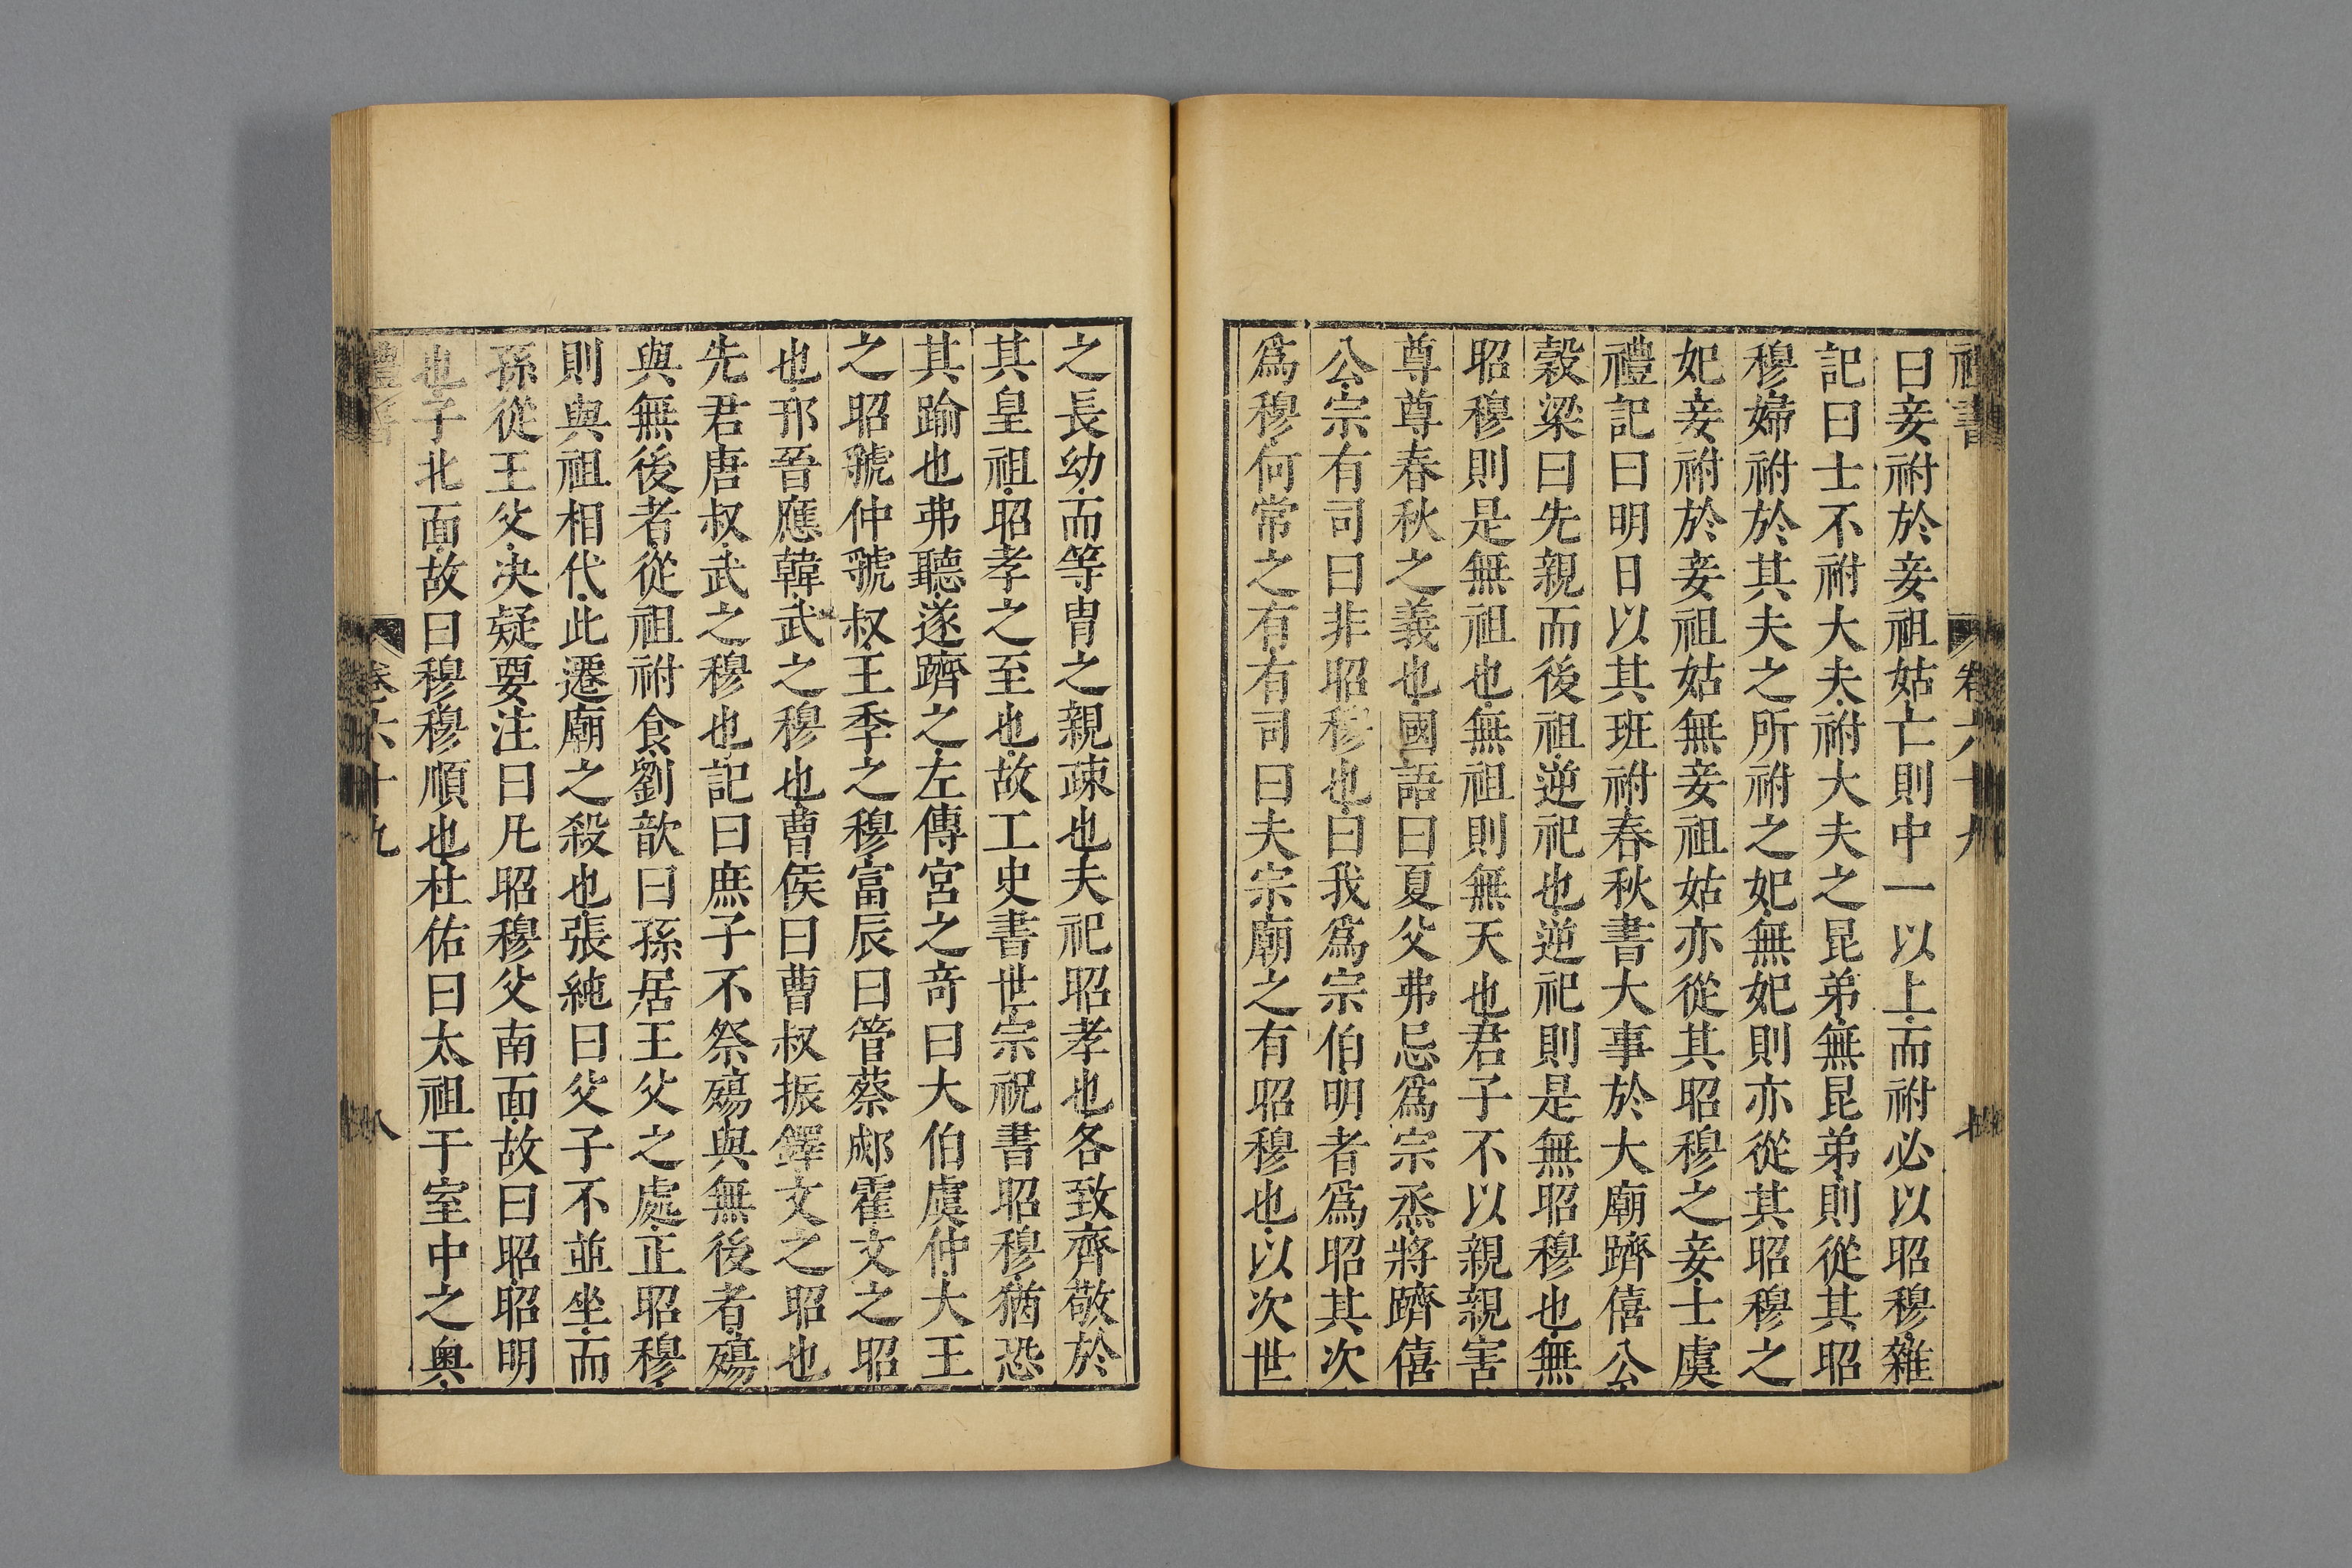 曰妾祔於妾祖姑亡則中一以上而祔必以昭穆雜
記曰士不祔大夫祔大夫之昆弟無昆弟則從其昭
穆婦祔於其夫之所祔之妃無妃則亦從其昭穆之
妃妾祔於妾祖姑無妾祖姑亦從其昭穆之妾士虞
禮記曰明日以其班祔春秋書大事於大廟躋僖公
穀梁曰先親而後祖逆祀也逆祀則是無昭穆也無
昭穆則是無祖也無祖則無天也君子不以親親害
尊尊春秋之義也國語曰夏父弗忌爲宗烝將躋僖
公宗有司曰非昭穆也曰我爲宗伯明者爲昭其次
爲穆何常之有有司曰夫宗廟之有昭穆也以次世
之長幼而等胄之親疎也夫祀昭孝也各致齊敬於
其皇祖昭孝之至也故工史書世宗祝書昭穆猶恐
其踰也弗聽遂躋之左傳宮之奇曰大伯虞仲大王
之昭虢仲虢叔王季之穆富辰曰管蔡郕霍文之昭
也邗晉應韓武之穆也曹侯曰曹叔振鐸文之昭也
先君唐叔武之穆也記曰庶子不祭殤與無後者殤
與無後者從祖祔食劉歆曰孫居王父之處正昭穆
則與祖相代此遷廟之殺也張純曰父子不並坐而
孫從王父决疑要注曰凡昭穆父南面故曰昭昭明
也子北面故曰穆穆順也杜佑曰太祖于室中之奥
禮書 卷六十九 八